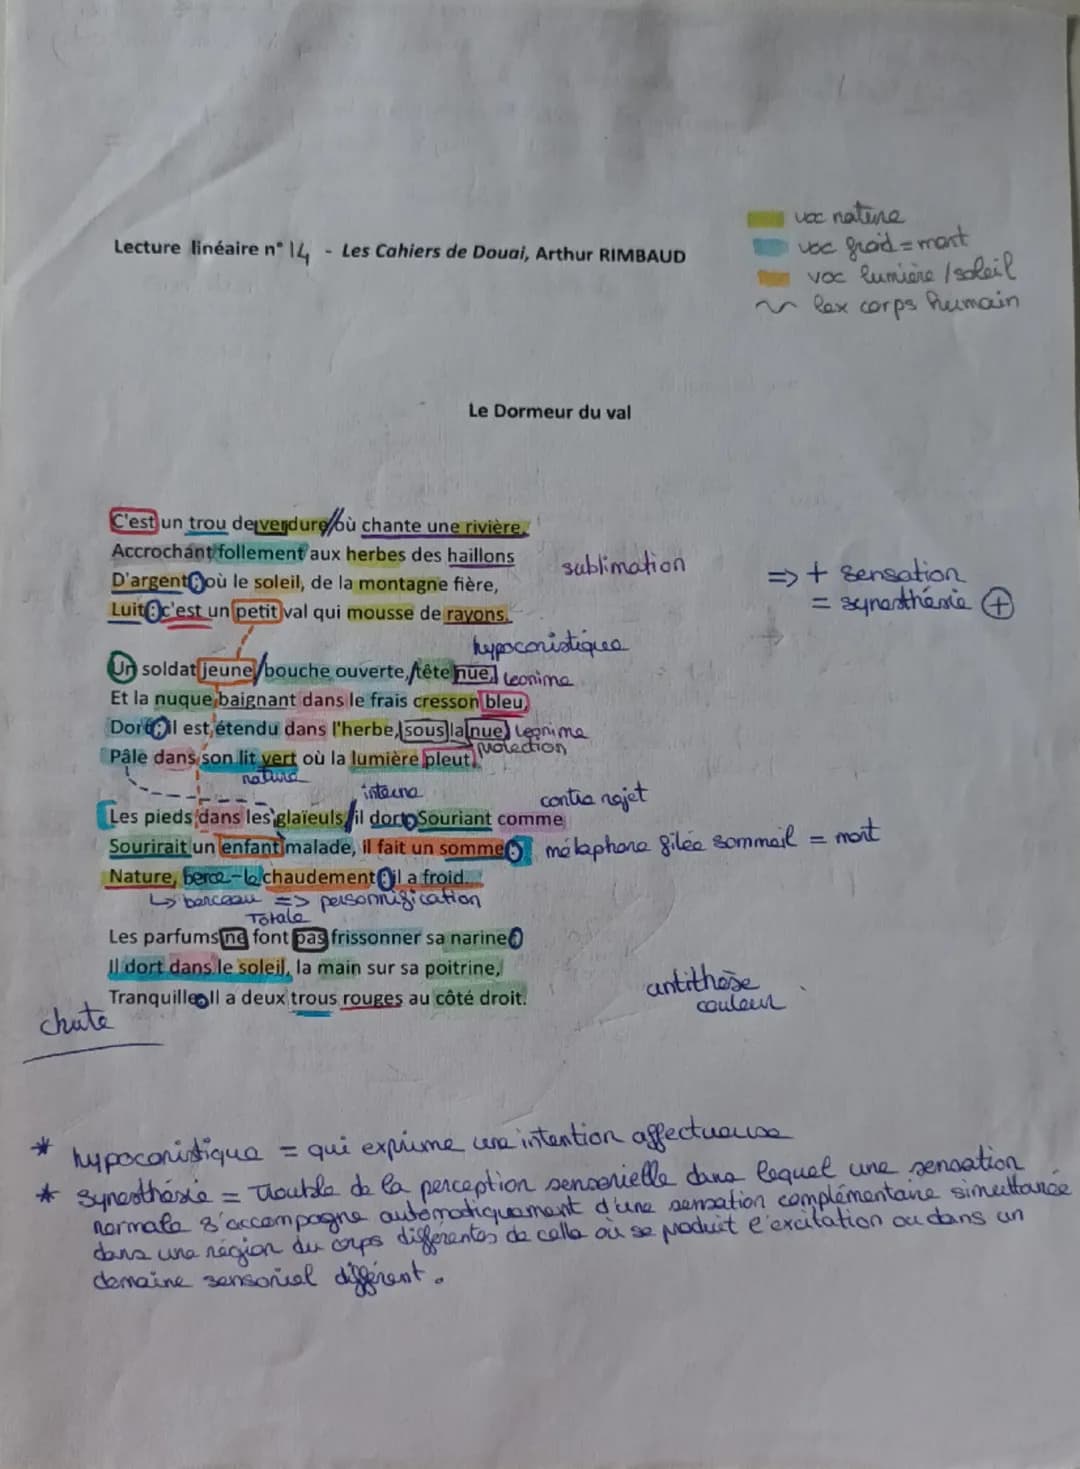 voc nature
voc froid = mort
voc lumière / soleil
lex corps humain
Lecture linéaire n° 14 - Les Cahiers de Douai, Arthur RIMBAUD
Le Dormeur du val
C'est un trou de verdure où chante une rivière,
Accrochant follement aux herbes des haillons
sublimation
D'argent ; où le soleil, de la montagne fière,
=> + sensation
Luit : c'est un petit val qui mousse de rayons.
= synesthésie +
hypocoristique
Un soldat jeune, bouche ouverte, tête nue,
leonime
Et la nuque baignant dans le frais cresson bleu,
Dort ; il est étendu dans l'herbe, sous la nue, leonime
protection
Pâle dans son lit vert où la lumière pleut.
nature
interne
contre rejet
Les pieds dans les glaïeuls, il dort. Souriant comme
Sourirait un enfant malade, il fait un somme : métaphore filée sommeil = mort
Nature, berce-le chaudement : il a froid.
↳ berceau => personnification
Totale
Les parfums ne font pas frissonner sa narine ;
Il dort dans le soleil, la main sur sa poitrine,
Tranquille. Il a deux trous rouges au côté droit.
antithèse
couleur
chute
* hypocoristique = qui exprime une intention affectueuse
* Synesthésie = Trouble de la perception sensorielle dans lequel une sensation
normale s'accompagne automatiquement d'une sensation complémentaire simultanée
dans une région du corps différentes de celle où se produit l'excitation ou dans un
domaine sensoriel différent.